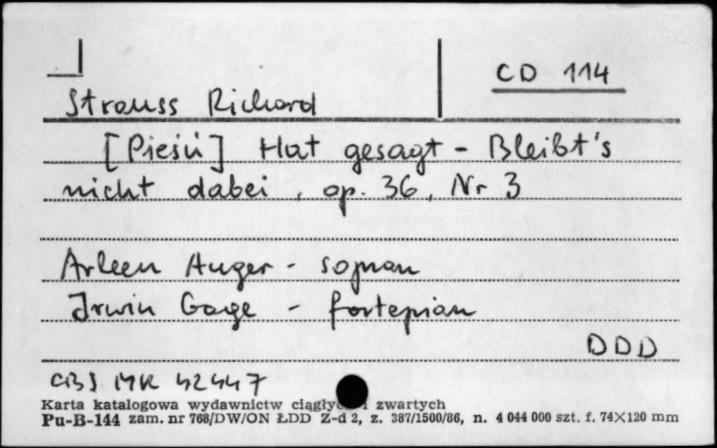 CD 114
Strauss Richard
[Pieśń] Hat gesagt - Bleibt's
nicht dabei, op. 36, Nr 3
Arleen Auger - sopran
Irwin Gage - fortepian
DDD
CBS MK 42447
Karta katalogowa wydawnictw i zwartych
Pu-B-144 zam. nr 768/DW/ON ŁDD Z-d 2, z. 387/1500/86, n. 4 044 000 szt. f. 74×120 mm